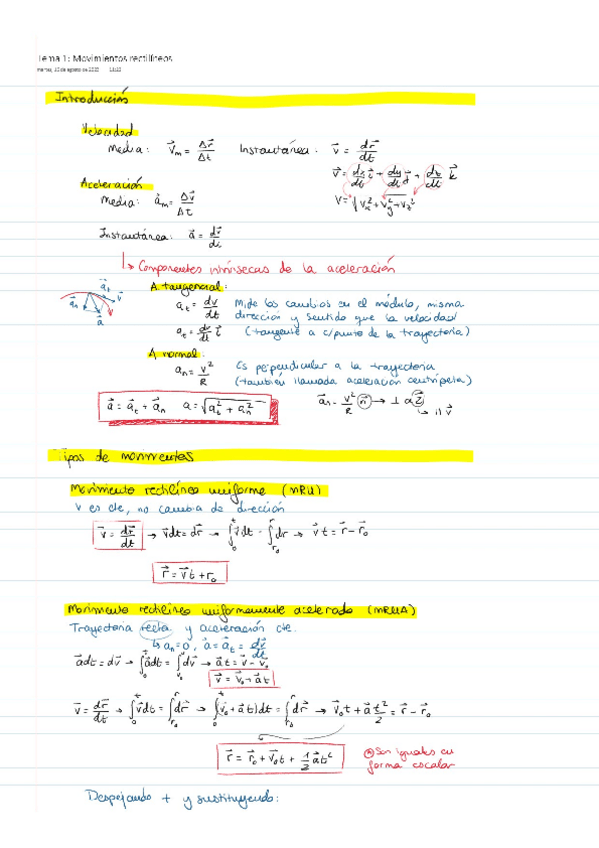 Tema 1: Movimientos rectilíneos
martes, 10 de agosto de 2021 13:22
Introducción
Velocidad
Media: v⃗m = Δr⃗/Δt   Instantánea: v⃗ = dr⃗/dt
v⃗ = dx/dt i⃗ + dy/dt j⃗ + dz/dt k⃗
Aceleración
Media: a⃗m = Δv⃗/Δt   v = √(vx² + vy² + vz²)
Instantánea: a⃗ = dv⃗/dt
↳ Componentes intrínsecas de la aceleración
A tangencial:
at = dv/dt   Mide los cambios en el módulo, misma
dirección y sentido que la velocidad
at = dv/dt t⃗   (tangente a c/punto de la trayectoria)
A normal:
an = v²/R   Es perpendicular a la trayectoria
(también llamada aceleración centrípeta)
a⃗ = a⃗t + a⃗n   a = √(at² + an²)   a⃗n = v²/R n⃗ → ⊥ a t⃗
↳ // v⃗
a⃗t
a⃗n
v⃗
a⃗
Tipos de movimientos
Movimiento rectilíneo uniforme (MRU)
v es cte, no cambia de dirección
v⃗ = dr⃗/dt → v⃗dt = dr⃗ → ∫₀ᵗ v⃗dt = ∫r₀ʳ dr → v⃗t = r⃗ - r⃗₀
r⃗ = v⃗t + r₀
Movimiento rectilíneo uniformemente acelerado (MRUA)
Trayectoria recta y aceleración cte.
↳ an = 0, a⃗ = a⃗t = dv⃗/dt
a⃗dt = dv⃗ → ∫₀ᵗ a⃗dt = ∫v₀ᵛ dv⃗ → a⃗t = v⃗ - v⃗₀
v⃗ = v⃗₀ + a⃗t
v⃗ = dr⃗/dt → ∫₀ᵗ v⃗dt = ∫r₀ʳ dr⃗ → ∫₀ᵗ (v⃗₀ + a⃗t)dt = ∫r₀ʳ dr⃗ → v⃗₀t + a⃗ t²/2 = r⃗ - r⃗₀
r⃗ = r⃗₀ + v⃗₀t + 1/2 a⃗t²   Son iguales en
forma escalar
Despejando t y sustituyendo: